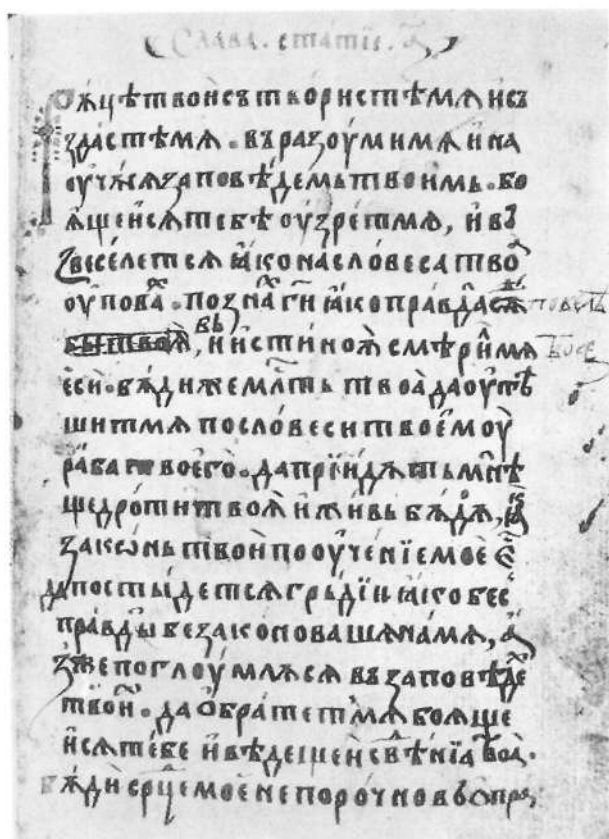 Слава. статїе. а҃
Рѫцѣ твои сътвористѣ мѧ и съ
здастѣ мѧ. въразоумими мѧ и на
оучѫсѧ заповѣдемь твоимь. бо
ѧщеи сѧ тебѣ оузрет мѧ, и въ
звеселетсѧ ꙗко на словеса тво
оупова. позна ги ꙗко правда сѫ
твоѫ, и истиноѫ смѣри мѧ
вь
еси. бѫди же млть твоа да оутѣ
шит мѧ по словеси твоемоу
рабѹ твоего. да прїидѫть мнѣ
щедроти твоѫ и живь бѫдѫ, ꙗ
законь твои пооученїе мое е
да постыдетсѧ грьдїи ꙗко бес
правды безаконовашѧ на мѧ, а
зже поглоумлѫсѧ въ заповѣде
твои. да обратет мѧ боѧще
и сѧ тебе и вѣдещеи свѣнїа твоа.
бѫди срце мое непорочно въ опра